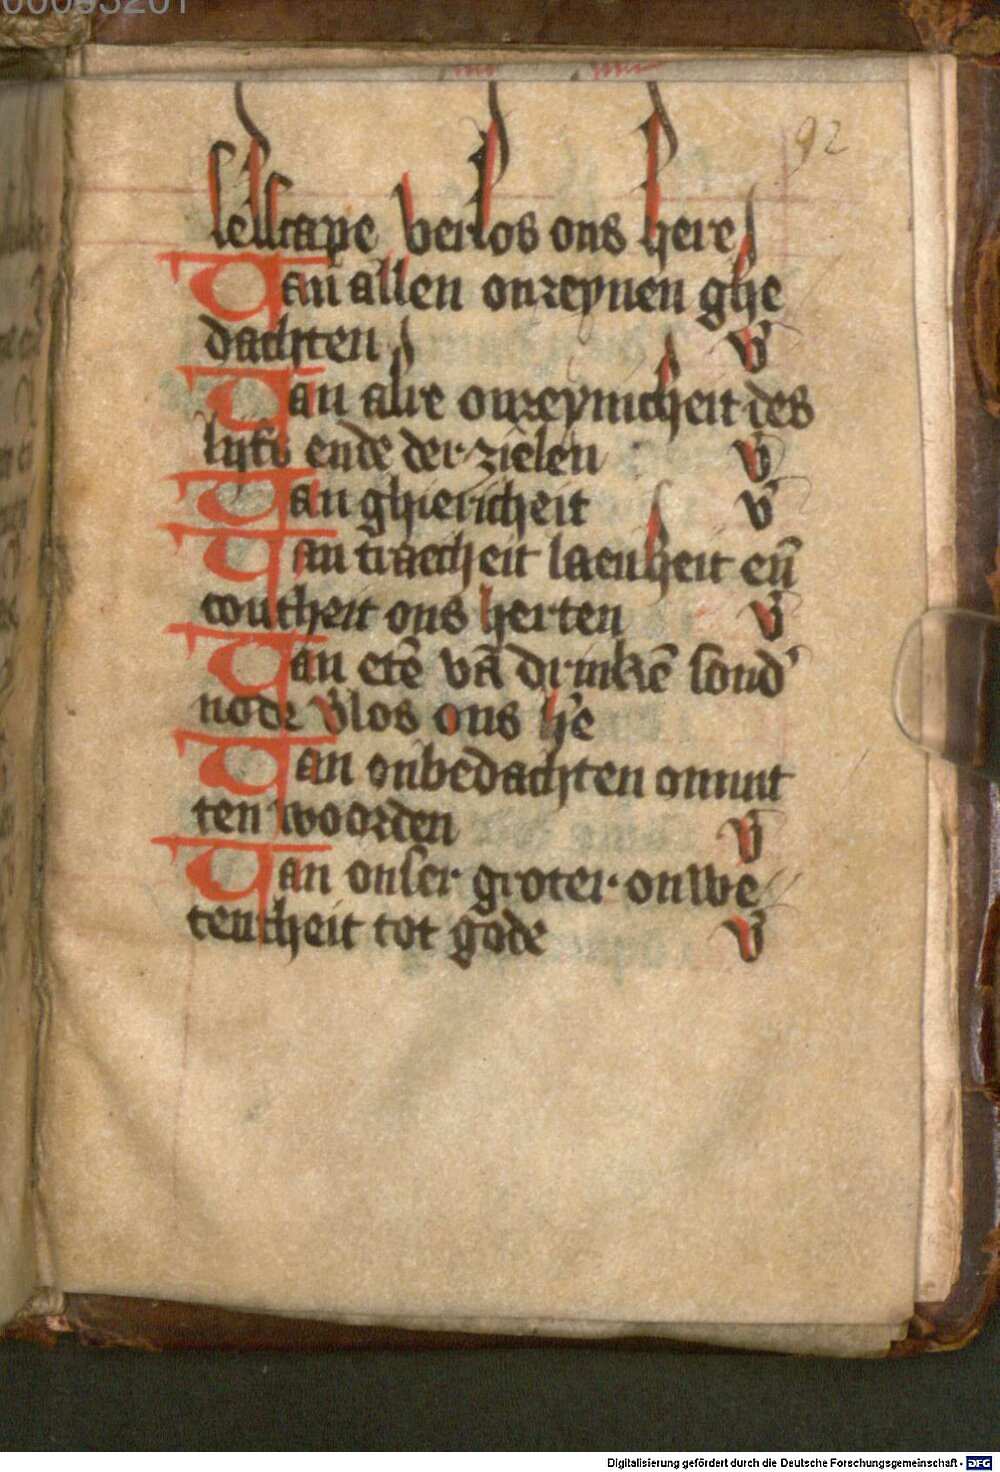 00095201
92
selscape verlos ons here
Van allen onreynen ghe
dachten v
Van alre onreynicheit des
lijfs ende der zielen v
Van ghiericheit v
Van traecheit laeuheit eñ
coutheit ons herten v
Van etē vā drinkē sond'
node v'los ons h'e
Van onbedachten onnut
ten woorden v
Van onser groter onwe
tentheit tot gode v
Digitalisierung gefördert durch die Deutsche Forschungsgemeinschaft - DFG